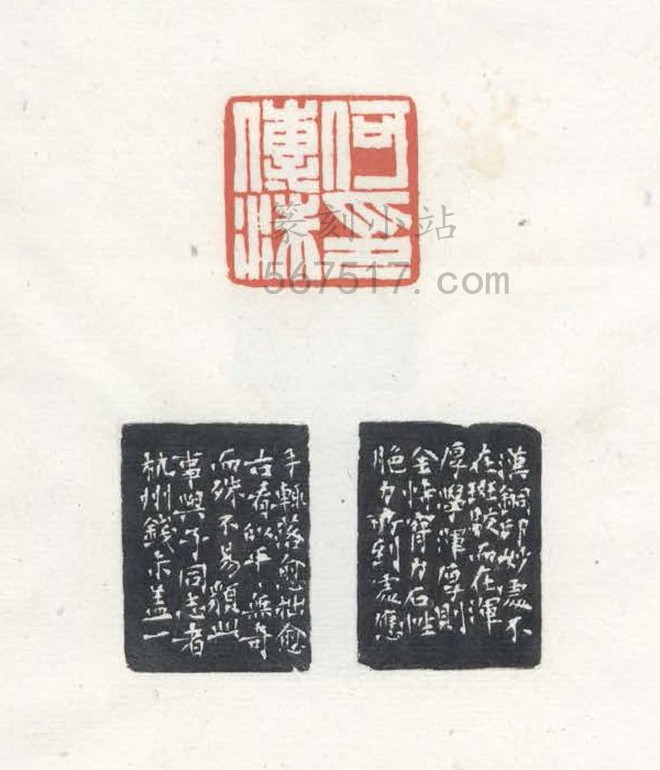 何印
傳洙
篆刻小站
567517.com
漢銅印妙處不
在斑駮而在渾
厚學渾厚則
全恃臂力石性
脆力所到處應
手輒落愈拙愈
古看似平〻無奇
而殊不易貌此
事與予同志者
杭州錢朩蓋一